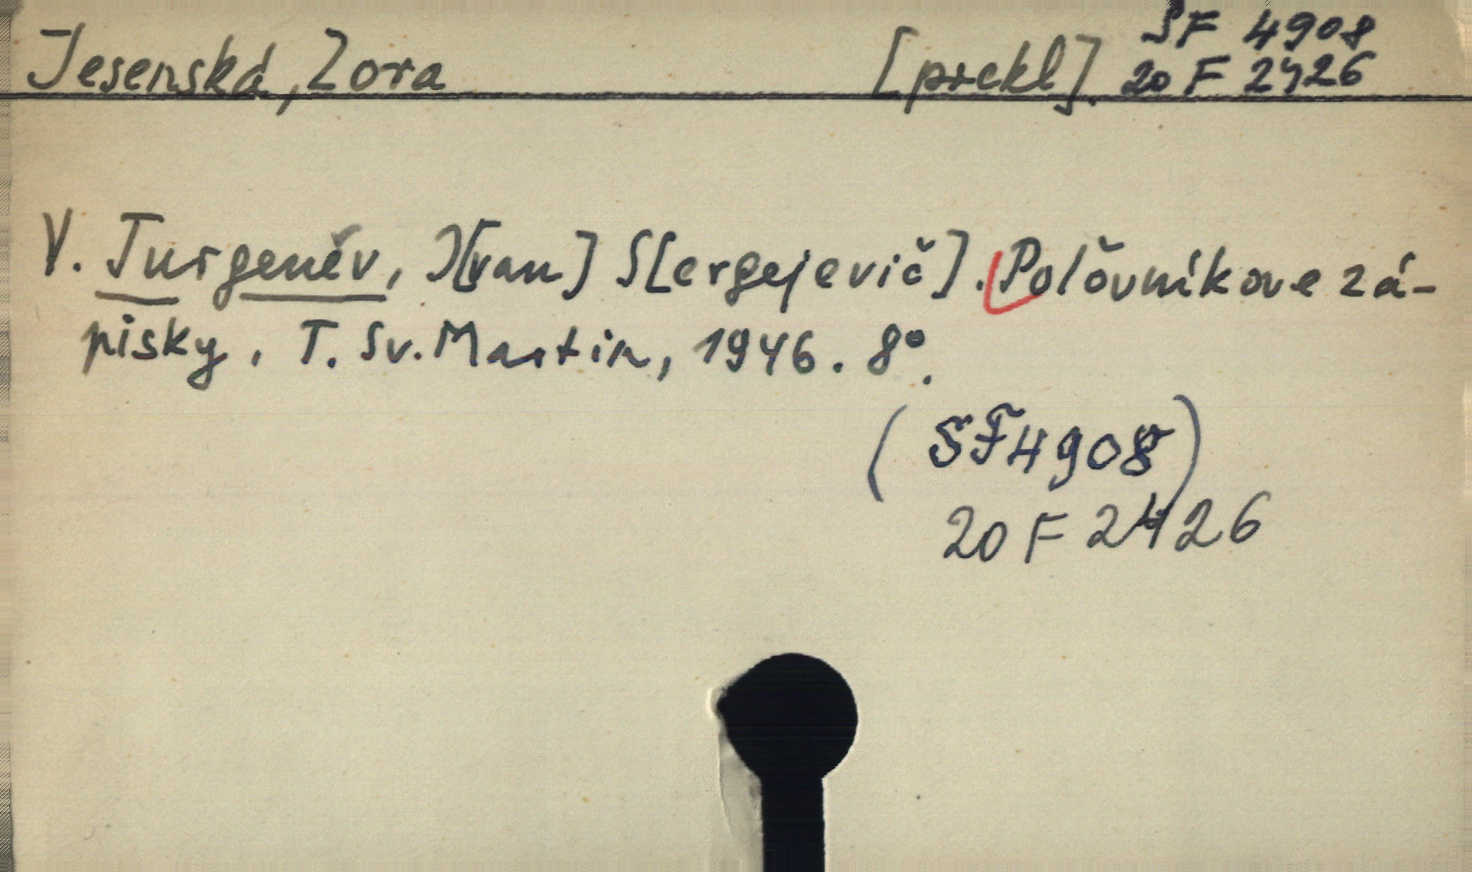 SF 4908
Jesenská, Zora [překl]. 20 F 2426
V. Turgeněv, I[van] S[ergejevič]. Polovníkove zá-
pisky. T. Sv. Martin, 1946. 8°.
(SF4908)
20 F 2426